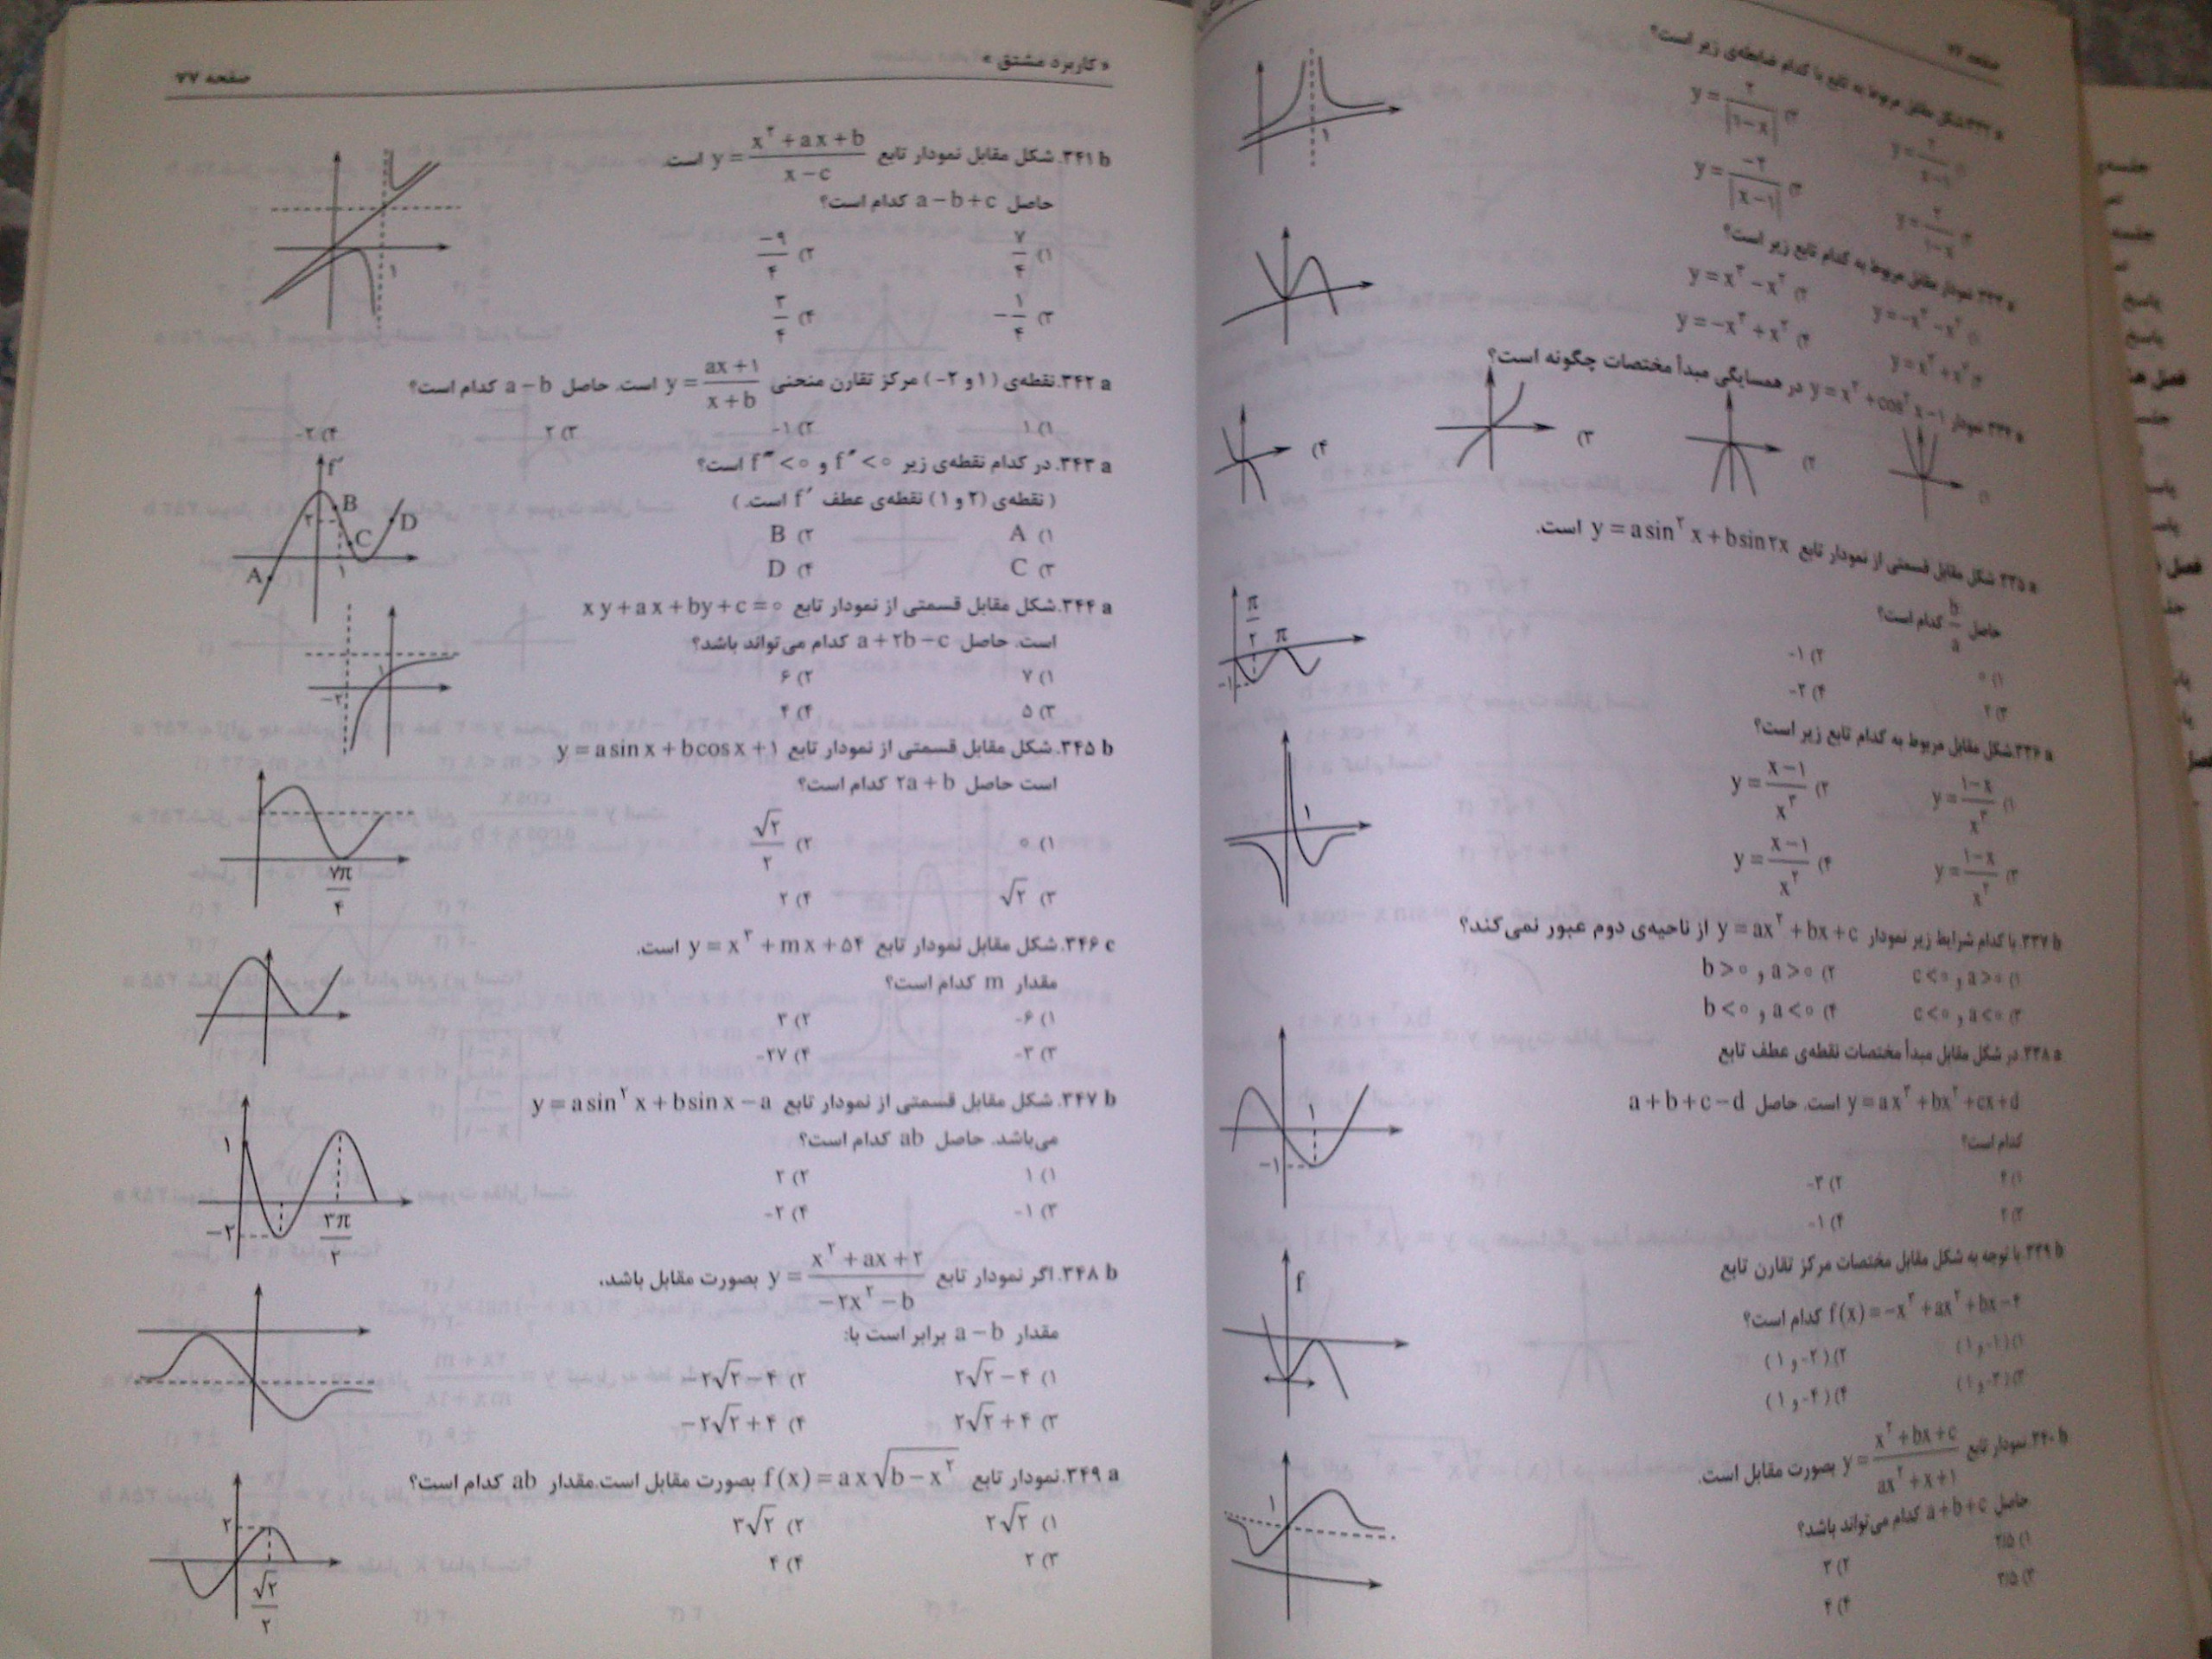 صفحه ۷۶
۳۳۲ a شکل مقابل مربوط به تابع با کدام ضابطه‌ی زیر است؟
۲) y = ۲/|۱-x|
۴) y = -۲/|x-۱|
۳۳۳ a نمودار مقابل مربوط به کدام تابع زیر است؟
۳۳۴ a نمودار y = x² + cos² x - ۱ در همسایگی مبدأ مختصات چگونه است؟
۳۳۵ a شکل مقابل قسمتی از نمودار تابع y = a sin² x + b sin ۲x است.
حاصل b/a کدام است؟
۱) ۰
۲) -۱
۳) ۲
۴) -۲
π/۲
π
-۱
۳۳۶ a شکل مقابل مربوط به کدام تابع زیر است؟
۱
۳۳۷ b با کدام شرایط زیر نمودار y = ax² + bx + c از ناحیه‌ی دوم عبور نمی‌کند؟
۱) c<۰ , a>۰
۲) b>۰ , a>۰
۳) c<۰ , a<۰
۴) b<۰ , a<۰
۳۳۸ a در شکل مقابل مبدأ مختصات نقطه‌ی عطف تابع
y = ax³ + bx² + cx + d است. حاصل a+b+c-d
کدام است؟
۲) -۲
۴) -۱
۱
-۱
۳۳۹ b با توجه به شکل مقابل مختصات مرکز تقارن تابع
f(x) = -x³ + ax² + bx - ۴ کدام است؟
۱) (۱ و -۱)
۲) (۱ و -۲)
۳) (۱ و -۳)
۴) (۱ و -۴)
f
۳۴۰ b نمودار تابع y = (x² + bx + c)/(ax² + x + ۱) بصورت مقابل است.
حاصل a+b+c کدام می‌تواند باشد؟
۲) ۳
۴) ۴
۱
« کاربرد مشتق »
صفحه ۷۷
۳۴۱ b. شکل مقابل نمودار تابع y = (x² + ax + b)/(x - c) است.
حاصل a - b + c کدام است؟
۱) ۷/۴
۲) -۹/۴
۳) -۱/۴
۴) ۳/۴
۱
۳۴۲ a. نقطه‌ی (۱ و -۲) مرکز تقارن منحنی y = (ax + ۱)/(x + b) است. حاصل a - b کدام است؟
۱) ۱
۲) -۱
۳) ۲
۴) -۲
۳۴۳ a. در کدام نقطه‌ی زیر f″ < ۰ و f‴ < ۰ است؟
( نقطه‌ی (۲ و ۱) نقطه‌ی عطف f′ است. )
۱) A
۲) B
۳) C
۴) D
f′
B
۲
D
C
A
۱
۳۴۴ a. شکل مقابل قسمتی از نمودار تابع xy + ax + by + c = ۰
است. حاصل a + ۲b - c کدام می‌تواند باشد؟
۱) ۷
۲) ۶
۳) ۵
۴) ۴
۱
-۲
۳۴۵ b. شکل مقابل قسمتی از نمودار تابع y = a sin x + b cos x + ۱
است حاصل ۲a + b کدام است؟
۱) ۰
۲) √۲/۲
۳) √۲
۴) ۲
۷π/۴
۳۴۶ c. شکل مقابل نمودار تابع y = x³ + mx + ۵۴ است.
مقدار m کدام است؟
۱) -۶
۲) ۳
۳) -۳
۴) -۲۷
۳۴۷ b. شکل مقابل قسمتی از نمودار تابع y = a sin² x + b sin x - a
می‌باشد. حاصل ab کدام است؟
۱) ۱
۲) ۲
۳) -۱
۴) -۲
۱
-۲
۳π/۲
۳۴۸ b. اگر نمودار تابع y = (x² + ax + ۲)/(-۲x² - b) بصورت مقابل باشد،
مقدار a - b برابر است با:
۱) ۲√۲ - ۴
۲) -۲√۲ - ۴
۳) ۲√۲ + ۴
۴) -۲√۲ + ۴
۳۴۹ a. نمودار تابع f(x) = ax√(b - x²) بصورت مقابل است. مقدار ab کدام است؟
۱) ۲√۲
۲) ۳√۲
۳) ۲
۴) ۴
۲
√۲/۲